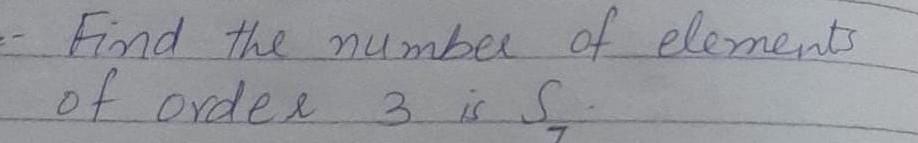 :- Find the number of elements
of order 3 is S₇.